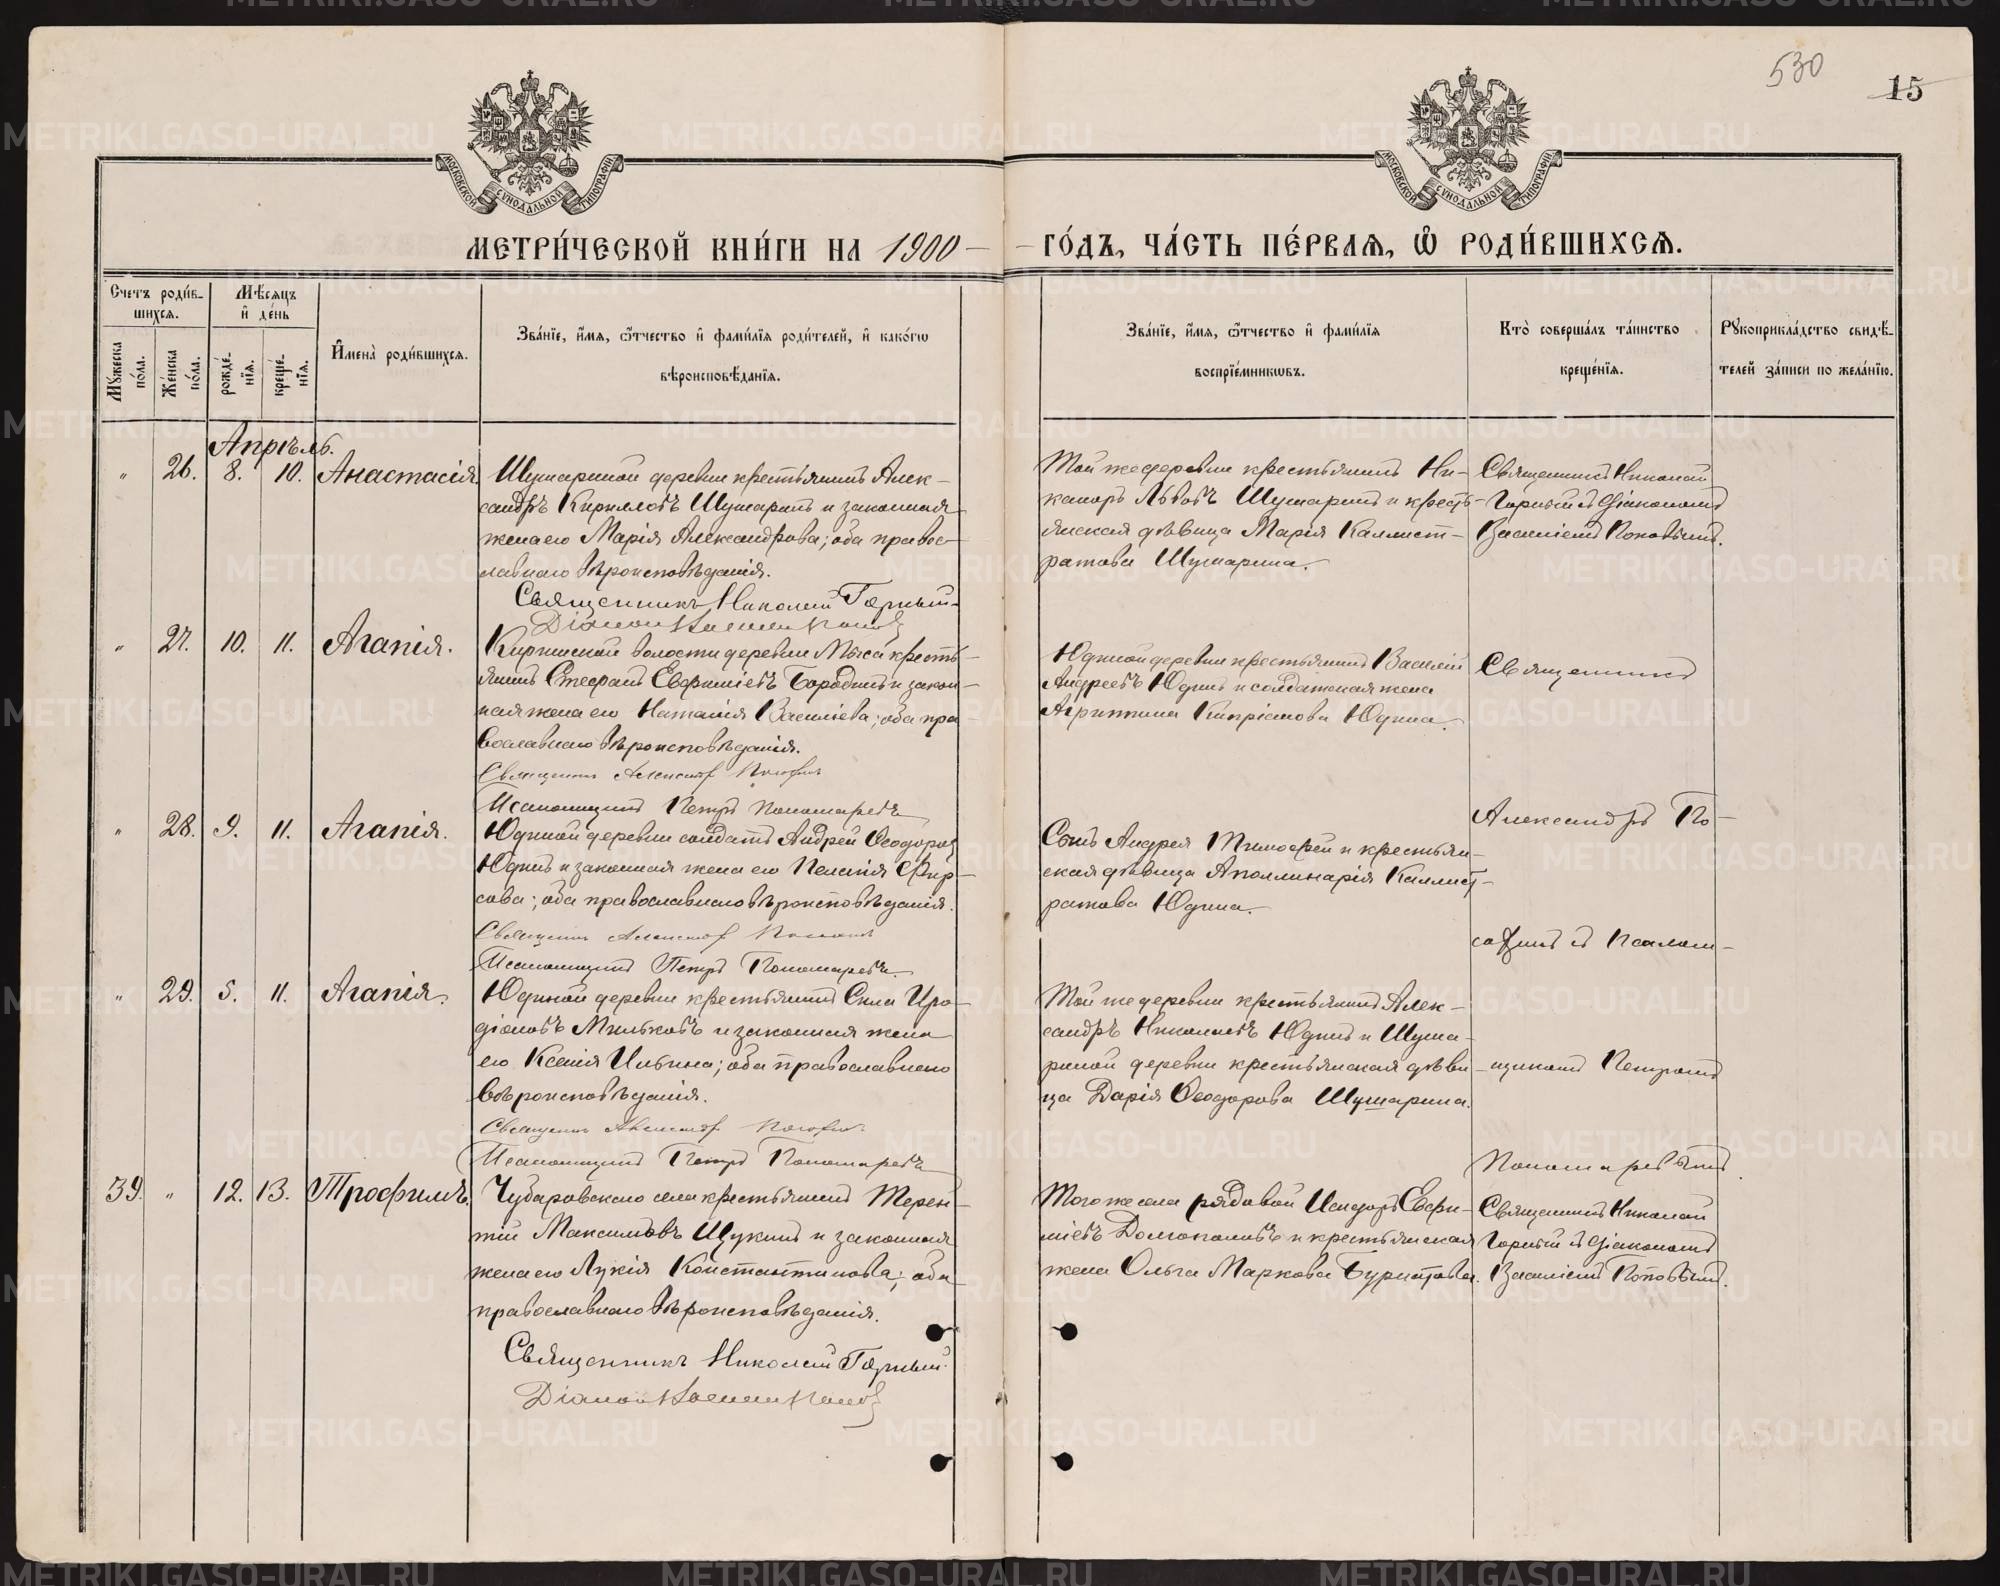 530
15
МОСКОВСКОЙ СѴНОДАЛЬНОЙ ТИПОГРАФІИ
МОСКОВСКОЙ СѴНОДАЛЬНОЙ ТИПОГРАФІИ
МЕТРИ́ЧЕСКОЙ КНИ́ГИ НА 1900
ГО́ДЪ, ЧА́СТЬ ПЕ́РВАѦ, Ѡ РОДИ́ВШИХСѦ.
Счетъ роди́в-
шихсѧ.
Мѣ́сѧцъ
и҆ де́нь
Мꙋ́жеска
по́ла.
Же́нска
по́ла.
рожде́-
нїѧ.
креще́-
нїѧ.
И҆мена̀ роди́вшихсѧ.
Зва́нїе, и҆́мѧ, ѻ҆́тчество и҆ фами́лїѧ роди́телей, и҆ како́гѡ
вѣроисповѣ́данїѧ.
Зва́нїе, и҆́мѧ, ѻ҆́тчество и҆ фами́лїѧ
воспрїе́мникѡвъ.
Кто̀ соверша́лъ та́инство
креще́нїѧ.
Рꙋкоприкла́дство свидѣ́-
телей за́писи по жела́нїю.
Апрѣль.
" 26. 8. 10. Анастасія
Шумариной деревни крестьянинъ Алек-
сандръ Кирилловъ Шумаринъ и законная
жена его Марія Александрова; оба правос-
лавнаго вѣроисповѣданія.
Священникъ Николай Горный
Діаконъ Василій Поповъ
Той же деревни крестьянинъ Ни-
каноръ Львовъ Шумаринъ и кресть-
янская дѣвица Марія Каллист-
ратова Шумарина.
Священникъ Николай
Горный съ Діакономъ
Василіемъ Поповымъ.
" 27. 10. 11. Агапія.
волости деревни Мыса кресть-
янинъ Стефанъ Евфиміевъ Бородинъ и закон-
ная жена его Наталія Васильева; оба пра-
вославнаго вѣроисповѣданія.
Священникъ Александръ
Псаломщикъ Петръ Пономаревъ
Юдиной деревни крестьянинъ Василій
Андреевъ Юдинъ и солдатская жена
Агриппина Кипріанова Юдина.
Священникъ
" 28. 9. 11. Агапія.
Юдиной деревни солдатъ Андрей Ѳеодоровъ
Юдинъ и законная жена его Пелагія Фир-
сова; оба православнаго вѣроисповѣданія.
Священникъ Александръ
Псаломщикъ Петръ Пономаревъ
Сынъ Андрея Тимофей и крестьян-
ская дѣвица Аполлинарія Каллист-
ратова Юдина.
Александръ По-
съ Псалом-
" 29. 5. 11. Агапія.
Юдиной деревни крестьянинъ Сила Иро-
діоновъ Мильковъ и законная жена
его Ксенія Ильина; оба православнаго
вѣроисповѣданія.
Священникъ Александръ
Псаломщикъ Петръ Пономаревъ
Той же деревни крестьянинъ Алек-
сандръ Николаевъ Юдинъ и Шума-
риной деревни крестьянская дѣви-
ца Дарія Ѳеодорова Шумарина.
щикомъ Петромъ
Пономаревымъ.
39. " 12. 13. Трофимъ.
Чубаровскаго села крестьянинъ Терен-
тій Максимовъ Щукинъ и законная
жена его Лукія Константинова; оба
православнаго вѣроисповѣданія.
Священникъ Николай Горный
Діаконъ Василій Поповъ
Того же села рядовой Исидоръ Евфи-
міевъ Долгополовъ и крестьянская
жена Ольга Маркова
Священникъ Николай
Горный съ Діакономъ
Василіемъ Поповымъ.
METRIKI.GASO-URAL.RU